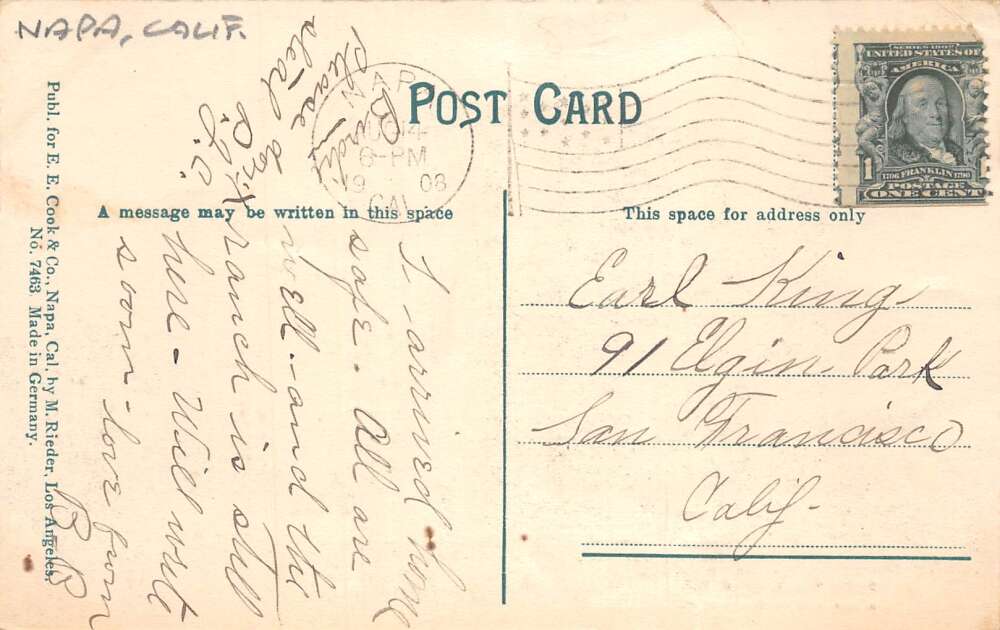 NAPA, CALIF.
POST CARD
NAPA
AUG 14
6-PM
1908
CAL
SERIES 1902
UNITED STATES OF
AMERICA
1
1706 FRANKLIN 1790
POSTAGE
ONE CENT
A message may be written in this space
This space for address only
I arrived home
safe - All are
well - and the
ranch is still
here - Will write
soon - love from
B B
Earl King
91 Elgin Park
San Francisco
Calif -
Publ. for E. E. Cook & Co., Napa, Cal. by M. Rieder, Los Angeles.
No. 7463. Made in Germany.